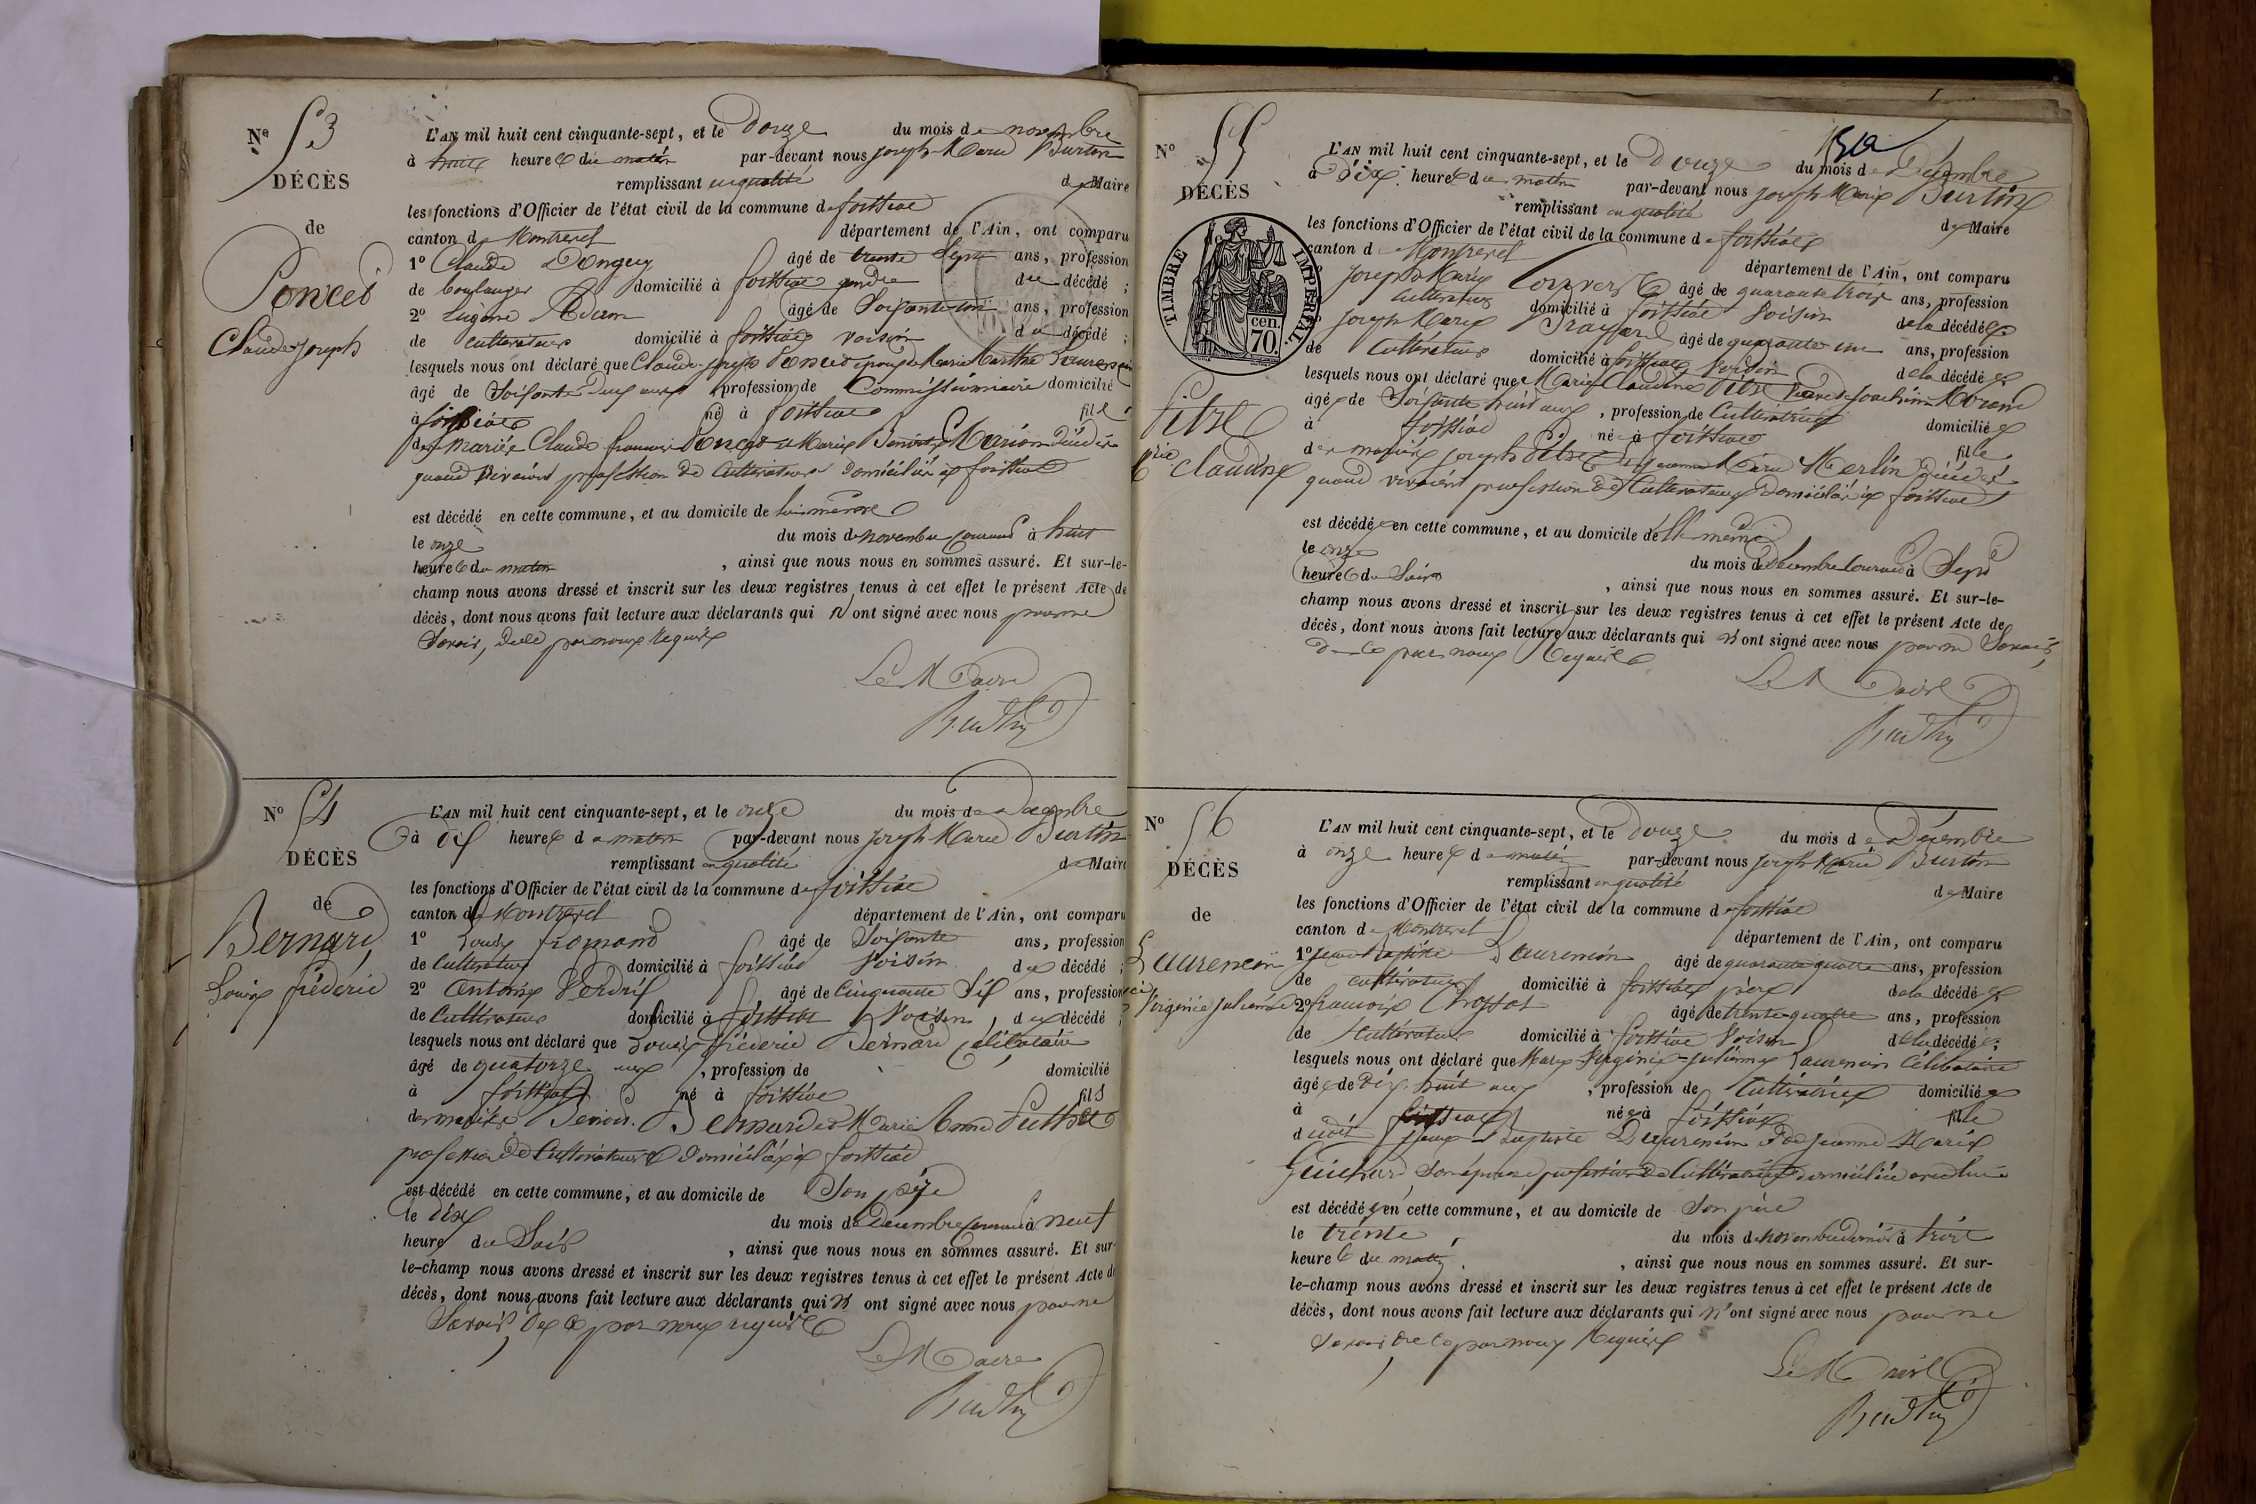 Nº 53
DÉCÈS
de
Poncet
Claude Joseph
L'AN mil huit cent cinquante-sept, et le Douze du mois de novembre
à heures du matin par-devant nous Joseph Marie Burtin
remplissant en qualité de Maire
les fonctions d'Officier de l'état civil de la commune de foissiat
canton de Montrevel département de l'Ain, ont comparu
1º Claude Donguy âgé de trente Sept ans, profession
de boulanger domicilié à foissiat gendre du décédé ;
2º Eugène âgé de Soixante un ans, profession
de cultivateur domicilié à foissiat voisin du décédé ;
lesquels nous ont déclaré que Claude Joseph Poncet époux de Marie Marthe Laurencin
âgé de Soixante Deux ans, profession de Commissionnaire domicilié
à foissiat né à foissiat fils
des mariés Claude françois Poncet et Marie Benoite Marion Décédés
quand vivaient profession de Cultivateurs Domiciliés à foissiat
est décédé en cette commune, et au domicile de lui même
le onze du mois de novembre courant à huit
heures du matin, ainsi que nous nous en sommes assuré. Et sur-le-
champ nous avons dressé et inscrit sur les deux registres tenus à cet effet le présent Acte de
décès, dont nous avons fait lecture aux déclarants qui n'ont signé avec nous pour ne
Savoir, de ce par nous Requis
Le Maire
Burtin
Nº 54
DÉCÈS
de
Bernard,
Louis fréderic
L'AN mil huit cent cinquante-sept, et le onze du mois de Décembre
à Dix heures du matin par-devant nous Joseph Marie Burtin
remplissant en qualité de Maire
les fonctions d'Officier de l'état civil de la commune de foissiat
canton de Montrevel département de l'Ain, ont comparu
1º Louis fromand âgé de Soixante ans, profession
de Cultivateur domicilié à foissiat voisin du décédé ;
2º Antoine Perdrix âgé de Cinquante Six ans, profession
de Cultivateur domicilié à foissiat Voisin, du décédé ;
lesquels nous ont déclaré que Louis fréderic Bernard Célibataire
âgé de quatorze ans, profession de domicilié
à foissiat né à foissiat fils
des mariés Benoit Bernard et Marie Anne Puthet
profession de Cultivateurs Domiciliés à foissiat
est décédé en cette commune, et au domicile de Son père
le dix du mois de Décembre courant à neuf
heures du Soir, ainsi que nous nous en sommes assuré. Et sur-
le-champ nous avons dressé et inscrit sur les deux registres tenus à cet effet le présent Acte de
décès, dont nous avons fait lecture aux déclarants qui n'ont signé avec nous pour ne
Savoir, de ce par nous requis
Le Maire
Burtin
Nº 55
DÉCÈS
TIMBRE IMPÉRIAL
70 cen.
Pitre
Claudine
L'AN mil huit cent cinquante-sept, et le Douze du mois de Décembre
à Dix heures du matin par-devant nous Joseph Marie Burtin
remplissant en qualité de Maire
les fonctions d'Officier de l'état civil de la commune de foissiat
canton de Montrevel département de l'Ain, ont comparu
Joseph Marie Convert âgé de quarante trois ans, profession
Cultivateur domicilié à foissiat Voisin de la décédée
Joseph Marie Brayard âgé de quarante un ans, profession
de Cultivateur domicilié à foissiat Voisin de la décédée
lesquels nous ont déclaré que Marie Claudine Pitre veuve de Joachim Morand
âgée de Soixante huit ans, profession de Cultivatrice domiciliée
à foissiat née à foissiat fille
des mariés Joseph Pitre et Jeanne Marie Merlin Décédés
quand vivaient profession de Cultivateurs Domiciliés à foissiat
est décédée en cette commune, et au domicile d'elle même
le onze du mois de Décembre Courant à Sept
heures du Soir, ainsi que nous nous en sommes assuré. Et sur-le-
champ nous avons dressé et inscrit sur les deux registres tenus à cet effet le présent Acte de
décès, dont nous avons fait lecture aux déclarants qui n'ont signé avec nous pour ne Savoir,
de ce par nous Requis
Le Maire
Burtin
Nº 56
DÉCÈS
de
Laurencin
Virginie Julienne
L'AN mil huit cent cinquante-sept, et le Douze du mois de Décembre
à onze heures du matin par-devant nous Joseph Marie Burtin
remplissant en qualité de Maire
les fonctions d'Officier de l'état civil de la commune de foissiat
canton de Montrevel département de l'Ain, ont comparu
1º Jean Baptiste Laurencin âgé de quarante quatre ans, profession
de cultivateur domicilié à foissiat père de la décédée
2º francois Chossat âgé de trente quatre ans, profession
de Cultivateur domicilié à foissiat Voisin de la décédée ;
lesquels nous ont déclaré que Marie Virginie Julienne Laurencin Célibataire
âgée de Dix huit ans, profession de Cultivatrice domiciliée
à foissiat née à foissiat fille
dudit Jean Baptiste Laurencin et de Jeanne Marie
Guichard Son épouse, profession de Cultivatrice domiciliée avec lui
est décédée en cette commune, et au domicile de Son père
le trente du mois de novembre dernier à trois
heures du matin, ainsi que nous nous en sommes assuré. Et sur-
le-champ nous avons dressé et inscrit sur les deux registres tenus à cet effet le présent Acte de
décès, dont nous avons fait lecture aux déclarants qui n'ont signé avec nous pour ne
Savoir de ce par nous Requis
Le Maire
Burtin